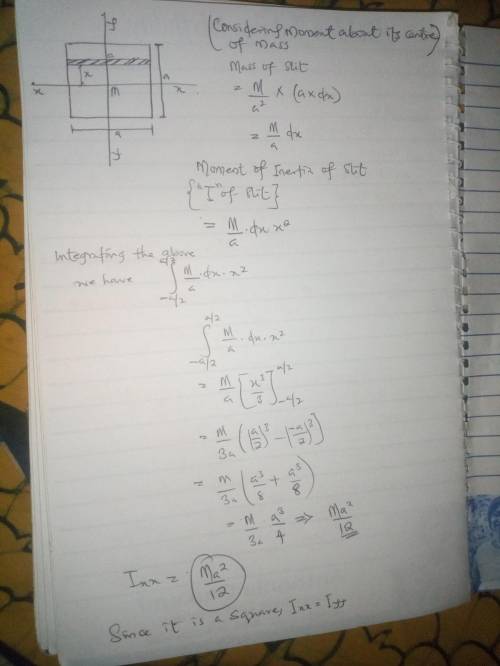 (Considering Moment about its centre
of mass)
y
a
x
x
M
x
a
a
y
Mass of slit
= M/a² × (a×dx)
= M/a dx
Moment of Inertia of slit
{"I" of slit}
= M/a · dx x²
Integrating the above
we have ∫_{-a/2}^{a/2} M/a · dx · x²
∫_{-a/2}^{a/2} M/a · dx · x²
= M/a [x³/3]_{-a/2}^{a/2}
= M/3a ((a/2)³ - (-a/2)³)
= M/3a (a³/8 + a³/8)
= M/3a a³/4 ⇒ Ma²/12
Ixx = Ma²/12
Since it is a square, Ixx = Iyy